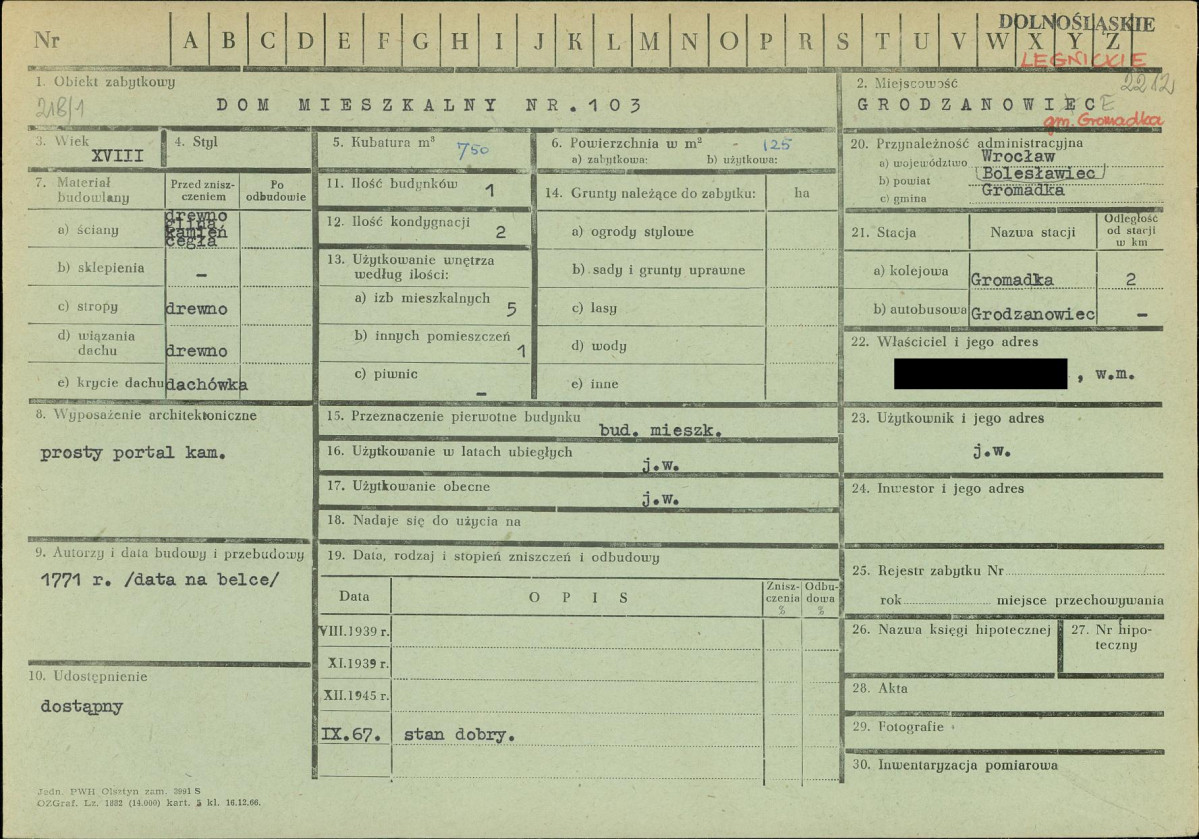 DOLNOŚLĄSKIE
Nr A B C D E F G H I J K L M N O P R S T U V W X Y Z
LEGNICKIE
2212
1. Obiekt zabytkowy
218/1
DOM MIESZKALNY NR.103
2. Miejscowość
GRODZANOWIECE
gm. Gromadka
3. Wiek
XVIII
4. Styl
5. Kubatura m³
750
6. Powierzchnia w m² - 125
a) zabytkowa: b) użytkowa:
7. Materiał budowlany
Przed zniszczeniem
Po odbudowie
a) ściany
drewno
glina
kamień
cegła
b) sklepienia –
c) stropy drewno
d) wiązania dachu drewno
e) krycie dachu dachówka
8. Wyposażenie architektoniczne
prosty portal kam.
9. Autorzy i data budowy i przebudowy
1771 r. /data na belce/
10. Udostępnienie
dostąpny
11. Ilość budynków 1
12. Ilość kondygnacji 2
13. Użytkowanie wnętrza
według ilości:
a) izb mieszkalnych 5
b) innych pomieszczeń 1
c) piwnic –
14. Grunty należące do zabytku: ha
a) ogrody stylowe
b) sady i grunty uprawne
c) lasy
d) wody
e) inne
15. Przeznaczenie pierwotne budynku
bud. mieszk.
16. Użytkowanie w latach ubiegłych
j.w.
17. Użytkowanie obecne
j.w.
18. Nadaje się do użycia na
19. Data, rodzaj i stopień zniszczeń i odbudowy
Data OPIS Zniszczenia % Odbudowa %
VIII.1939 r.
XI.1939 r.
XII.1945 r.
IX.67. stan dobry.
20. Przynależność administracyjna
a) województwo Wrocław
b) powiat (Bolesławiec)
c) gmina Gromadka
21. Stacja Nazwa stacji Odległość od stacji w km
a) kolejowa Gromadka 2
b) autobusowa Grodzanowiec –
22. Właściciel i jego adres
, w.m.
23. Użytkownik i jego adres
j.w.
24. Inwestor i jego adres
25. Rejestr zabytku Nr
rok miejsce przechowywania
26. Nazwa księgi hipotecznej
27. Nr hipoteczny
28. Akta
29. Fotografie
30. Inwentaryzacja pomiarowa
Jedn. PWH Olsztyn zam. 3991 S
OZGraf. Lz. 1882 (14.000) kart. 5 kl. 16.12.66.